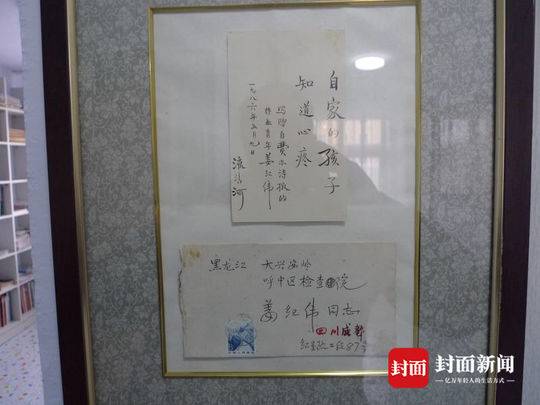 自家的孩子
知道心疼
写赠自费办诗报的
林业青年姜红伟
一九八六年五月九日
流沙河
黑龙江 大兴安岭
呼中区检查院
姜红伟同志
四川成都
红星路二段87号
封面 封面新闻
亿万年轻人的生活方式